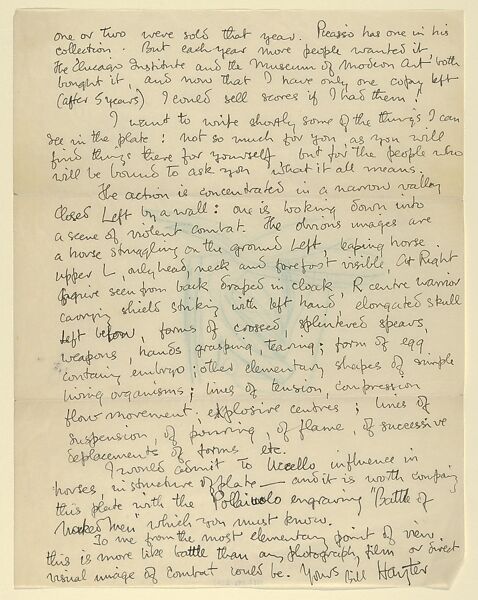 one or two were sold that year. Picasso has one in his
collection. But each year more people wanted it
The Chicago Institute and the Museum of Modern Art both
bought it and now that I have only one copy left
(after 5 years) I could sell scores if I had them!
I want to write shortly some of the things I can
see in the plate: not so much for you, as you will
find things there for yourself but for the people who
will be bound to ask you "what it all means.
The action is concentrated in a narrow valley
Closed Left by a wall: one is looking down into
a scene of violent combat. The obvious images are
a horse struggling on the ground Left, leaping horse
upper L, only head neck and forefoot visible, At Right
figure seen from back draped in cloak, R centre warrior
carrying shield striking with left hand elongated skull
Left below, forms of crossed, splintered spears,
weapons, hands grasping, tearing; form of egg
containing embryo; other elementary shapes of simple
living organisms; lines of tension, compression
flow movement, explosive centres; lines of
suspension, of pouring, of flame, of successive
deplacements of forms etc.
I would admit to Uccello influence in
horses, in structure of plate — and it is worth comparing
this plate with the Pollaiuolo engraving "Battle of
Naked Men" which you must know.
To me from the most elementary point of view
this is more like battle than any photograph, film or direct
visual image of combat could be. Yours Bill Hayter